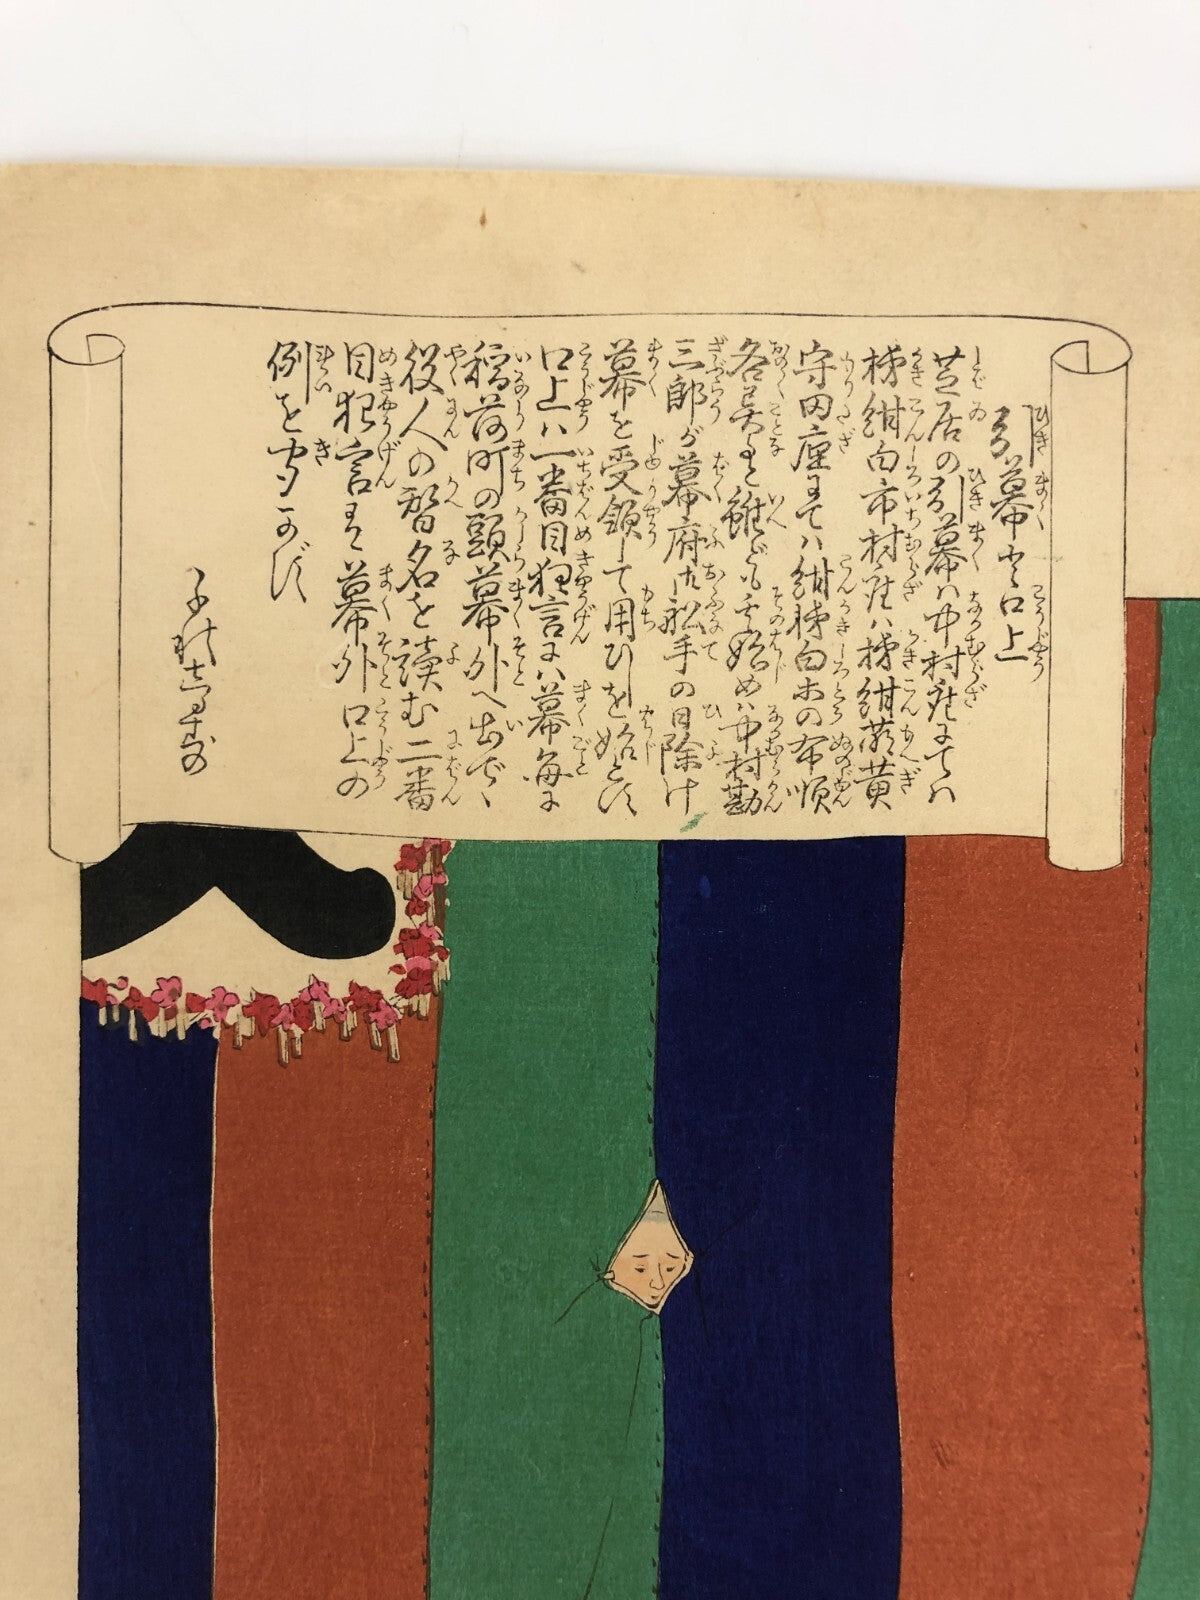 引幕と口上
芝居の引幕ハ中村座にてハ
柿紺白市村座ハ柿紺萠黄
守田座にてハ紺柿白等の布順
各異と雖ども其始めハ中村勘
三郎が幕府御舩手の日除け
幕を受領して用ひしを始とす
口上ハ一番目狂言にハ幕毎に
稲荷町の頭幕外へ出で、
役人の替名を讀む二番
目狂言にて幕外口上の
例を聞かず